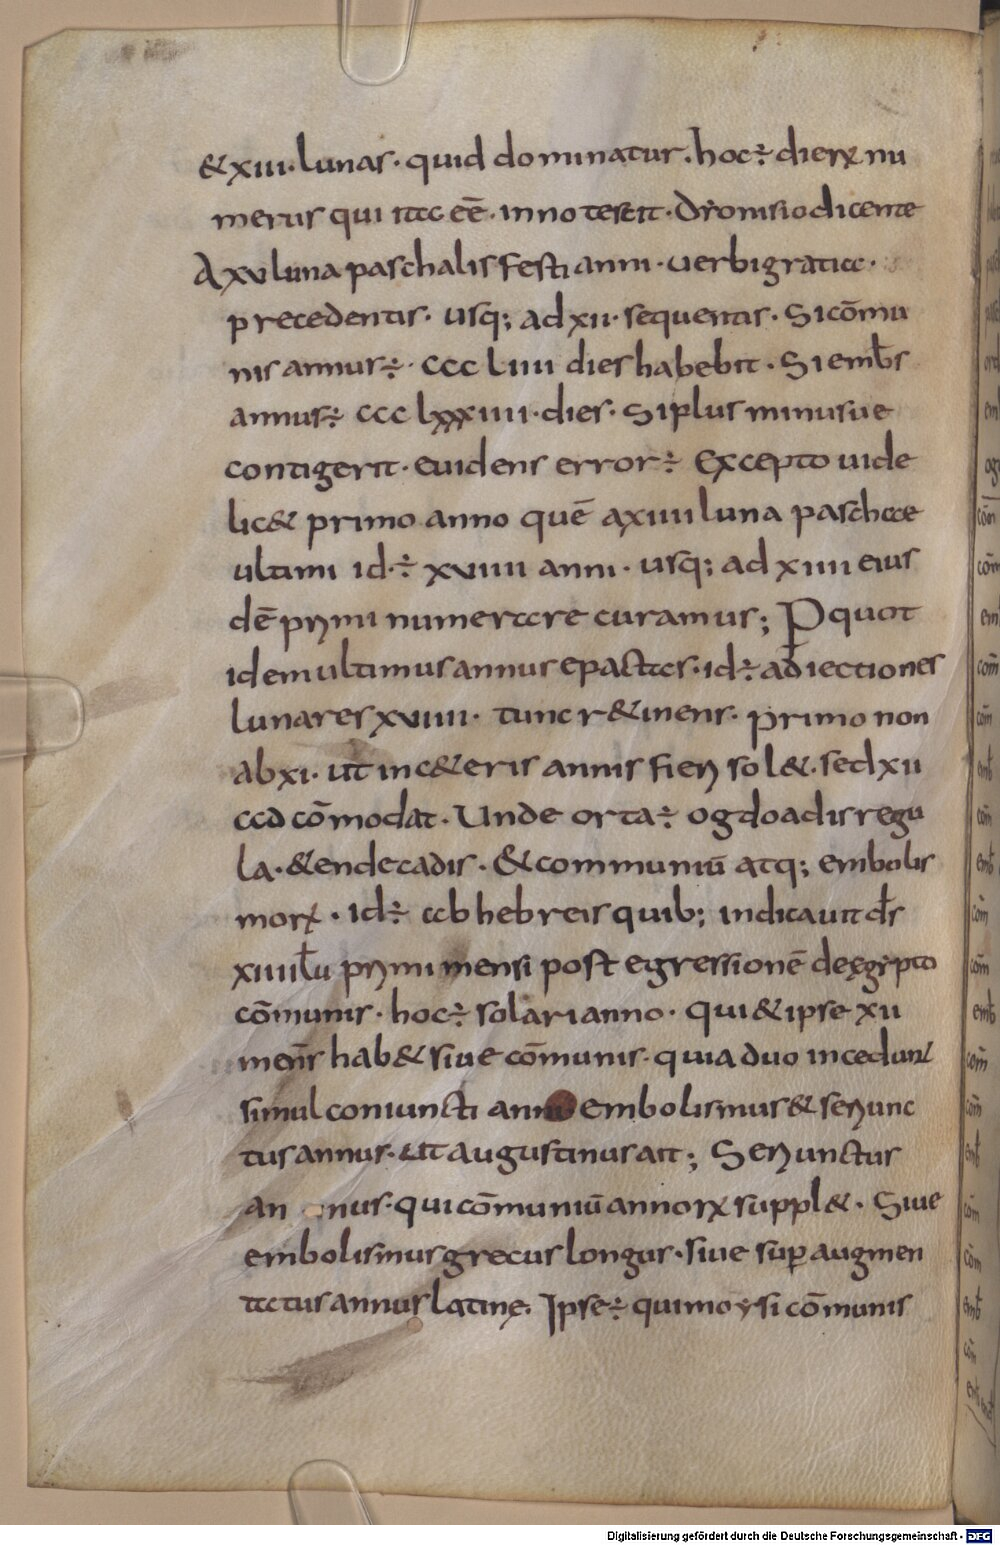 & xiii · lunas · quid dominatur · hoc ÷ dierꝝ nu
merus qui ita eē · innotescit · Dẏonisio dicente
A xv luna paschalis festi anni · verbi gratia ·
precedentis · usq; ad xii · sequentis · Si cōmu
nis annus ÷ · ccc liiii dies habebit · Si emb̄s
annus ÷ ccc lxxxiiii · dies · Si plus minusue
contigerit · euidens error ÷ Excepto uide
lic& primo anno quē a xiiii luna paschae
ultimi id · ÷ xviiii anni · usq; ad xiiii eius
dē primi numerare curamus ; Pquot
idem ultimus annus epactas · id ÷ adiectiones
lunares xviiii · tunc r&inens · primo non
ab xi · ut in c&eris annis fieri sol& · sed xii
accōmodat · Unde orta ÷ ogdoadis regu
la · & endecadis · & communiū atq; embolis
morꝝ · id ÷ ab hebreis quib; indicauit d̄s
xiiii lu primi mensi post egressionē de ęgipto
cōmunis · hoc ÷ solari anno · qui & ipse xii
mens̄ hab& siue cōmunis · quia duo incedunt
simul coniuncti anni embolismus & seriunc
tus annus · ut augustinus ait ; Seriunctus
an nus · qui cōmuniū annorꝝ suppl& · Siue
embolismus grecus longus · siue suꝑ augmen
tatus annus latine · Ipse ÷ qui moysi cōmunis
Digitalisierung gefördert durch die Deutsche Forschungsgemeinschaft - DFG